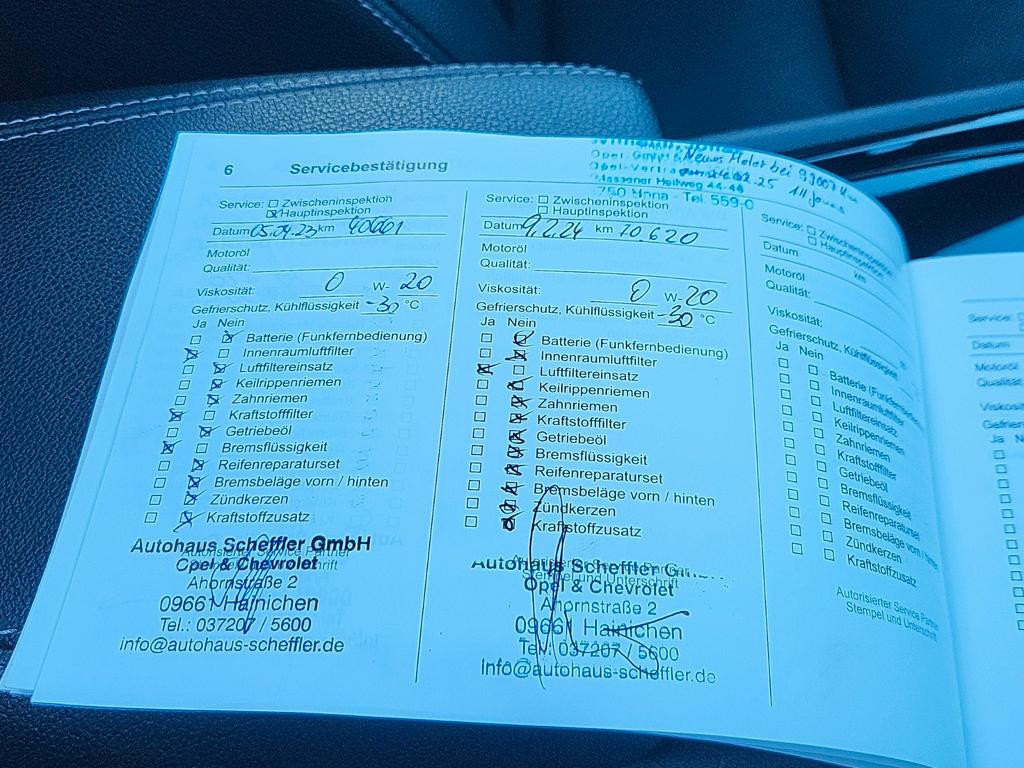 6 Servicebestätigung
Opel
Neues Motor bei 93007 km
Opel-Vertra
02.25
Massener Hellweg 44-49
Tel. 559-0
Service: Zwischeninspektion
Hauptinspektion
Datum 05.04.23 km 40661
Motoröl
Qualität:
Viskosität: 0 W-20
Gefrierschutz, Kühlflüssigkeit -30 °C
Ja Nein
Batterie (Funkfernbedienung)
Innenraumluftfilter
Luftfiltereinsatz
Keilrippenriemen
Zahnriemen
Kraftstofffilter
Getriebeöl
Bremsflüssigkeit
Reifenreparaturset
Bremsbeläge vorn / hinten
Zündkerzen
Kraftstoffzusatz
Autorisierter Service Partner
Autohaus Scheffler GmbH
Opel & Chevrolet
Ahornstraße 2
09661 Hainichen
Tel.: 037207 / 5600
info@autohaus-scheffler.de
Service: Zwischeninspektion
Hauptinspektion
Datum 9.2.24 km 70.620
Motoröl
Qualität:
Viskosität: 0 W-20
Gefrierschutz, Kühlflüssigkeit -30 °C
Ja Nein
Batterie (Funkfernbedienung)
Innenraumluftfilter
Luftfiltereinsatz
Keilrippenriemen
Zahnriemen
Kraftstofffilter
Getriebeöl
Bremsflüssigkeit
Reifenreparaturset
Bremsbeläge vorn / hinten
Zündkerzen
Kraftstoffzusatz
Autohaus Scheffler
Stempel und Unterschrift
Opel & Chevrolet
Ahornstraße 2
09661 Hainichen
Tel.: 037207 / 5600
info@autohaus-scheffler.de
Service: Zwischeninspektion
Hauptinspektion
Datum km
Motoröl
Qualität:
Viskosität:
Gefrierschutz, Kühlflüssigkeit
Ja Nein
Batterie (Funkfernbed
Innenraumluftfilter
Luftfiltereinsatz
Keilrippenriemen
Zahnriemen
Kraftstofffilter
Getriebeöl
Bremsflüssigkeit
Reifenreparaturset
Bremsbeläge vorn / hinten
Zündkerzen
Kraftstoffzusatz
Autorisierter Service Partner
Stempel und Unterschrift
Service:
Datum
Motoröl
Qualität
Viskosi
Gefrier
Ja N